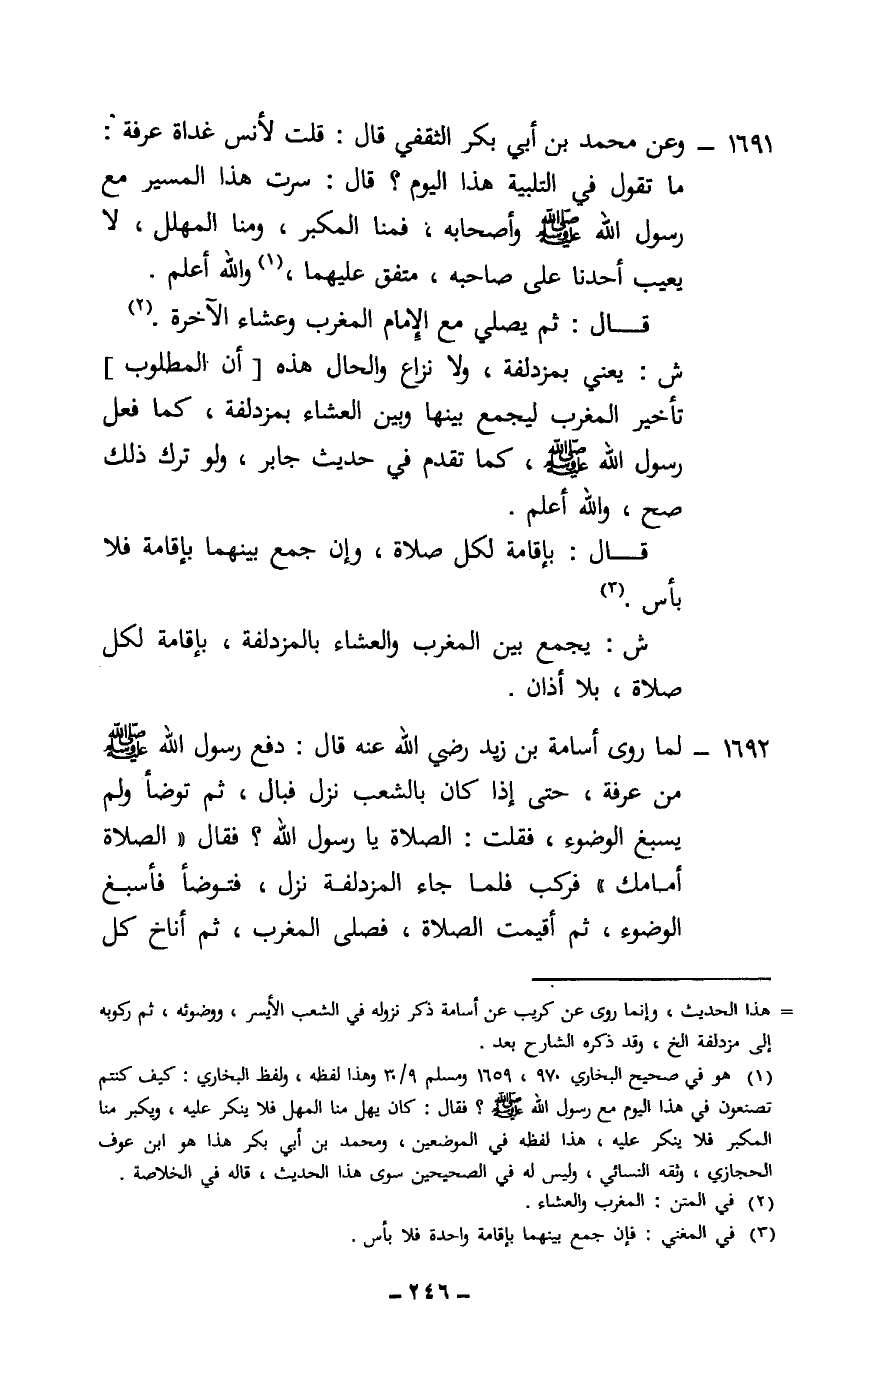 ١٦٩١ ــ وعن محمد بن أبي بكر الثقفي قال : قلت لأنس غداة عرفة :
ما تقول في التلبية هذا اليوم ؟ قال : سرت هذا المسير مع
رسول الله ﷺ وأصحابه ، فمنا المكبر ، ومنا المهلل ، لا
يعيب أحدنا على صاحبه ، متفق عليهما ،(١) والله أعلم .
قـــال : ثم يصلي مع الإمام المغرب وعشاء الآخرة .(٢)
ش : يعني بمزدلفة ، ولا نزاع والحال هذه [ أن المطلوب ]
تأخير المغرب ليجمع بينها وبين العشاء بمزدلفة ، كما فعل
رسول الله ﷺ ، كما تقدم في حديث جابر ، ولو ترك ذلك
صح ، والله أعلم .
قـــال : بإقامة لكل صلاة ، وإن جمع بينهما بإقامة فلا
بأس .(٣)
ش : يجمع بين المغرب والعشاء بالمزدلفة ، بإقامة لكل
صلاة ، بلا أذان .
١٦٩٢ ــ لما روى أسامة بن زيد رضي الله عنه قال : دفع رسول الله ﷺ
من عرفة ، حتى إذا كان بالشعب نزل فبال ، ثم توضأ ولم
يسبغ الوضوء ، فقلت : الصلاة يا رسول الله ؟ فقال « الصلاة
أمامك » فركب فلما جاء المزدلفة نزل ، فتوضأ فأسبغ
الوضوء ، ثم أقيمت الصلاة ، فصلى المغرب ، ثم أناخ كل
= هذا الحديث ، وإنما روى عن كريب عن أسامة ذكر نزوله في الشعب الأيسر ، ووضوئه ، ثم ركوبه
إلى مزدلفة الخ ، وقد ذكره الشارح بعد .
(١) هو في صحيح البخاري ٩٧٠ ، ١٦٥٩ ومسلم ٣٠/٩ وهذا لفظه ، ولفظ البخاري : كيف كنتم
تصنعون في هذا اليوم مع رسول الله ﷺ ؟ فقال : كان يهل منا المهل فلا ينكر عليه ، ويكبر منا
المكبر فلا ينكر عليه ، هذا لفظه في الموضعين ، ومحمد بن أبي بكر هذا هو ابن عوف
الحجازي ، وثقه النسائي ، وليس له في الصحيحين سوى هذا الحديث ، قاله في الخلاصة .
(٢) في المتن : المغرب والعشاء .
(٣) في المغني : فإن جمع بينهما بإقامة واحدة فلا بأس .
ــ ٢٤٦ ــ